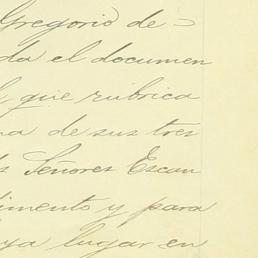 Gregorio de
da el documen
que rubrica
na de sus tres
s Señores Escan
dimento y para
ya lugar en